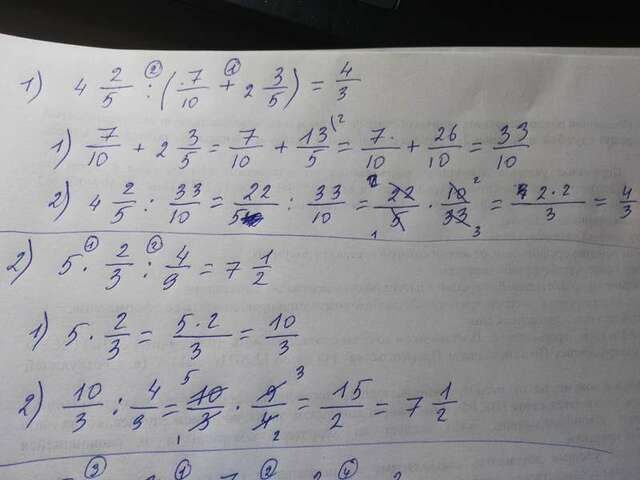 1) 4 2/5 :② ( 7/10 +① 2 3/5 ) = 4/3
1) 7/10 + 2 3/5 = 7/10 + 13/5 (2 = 7/10 + 26/10 = 33/10
2) 4 2/5 : 33/10 = 22/5 : 33/10 = 2 22/5 1 · 10/33 2 3 = 2·2/3 = 4/3
2) 5 ·① 2/3 :② 4/9 = 7 1/2
1) 5 · 2/3 = 5·2/3 = 10/3
2) 10/3 : 4/9 = 5 10/3 1 · 9/4 3 2 = 15/2 = 7 1/2
③ ① ② ④